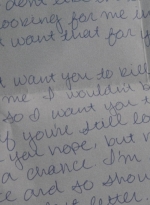 looking for me in
want that for y
want you to kill
me I wouldn't
so I want you t
if you're still lo
you nope, but n
a chance. I'm
ce and so shou
letter.